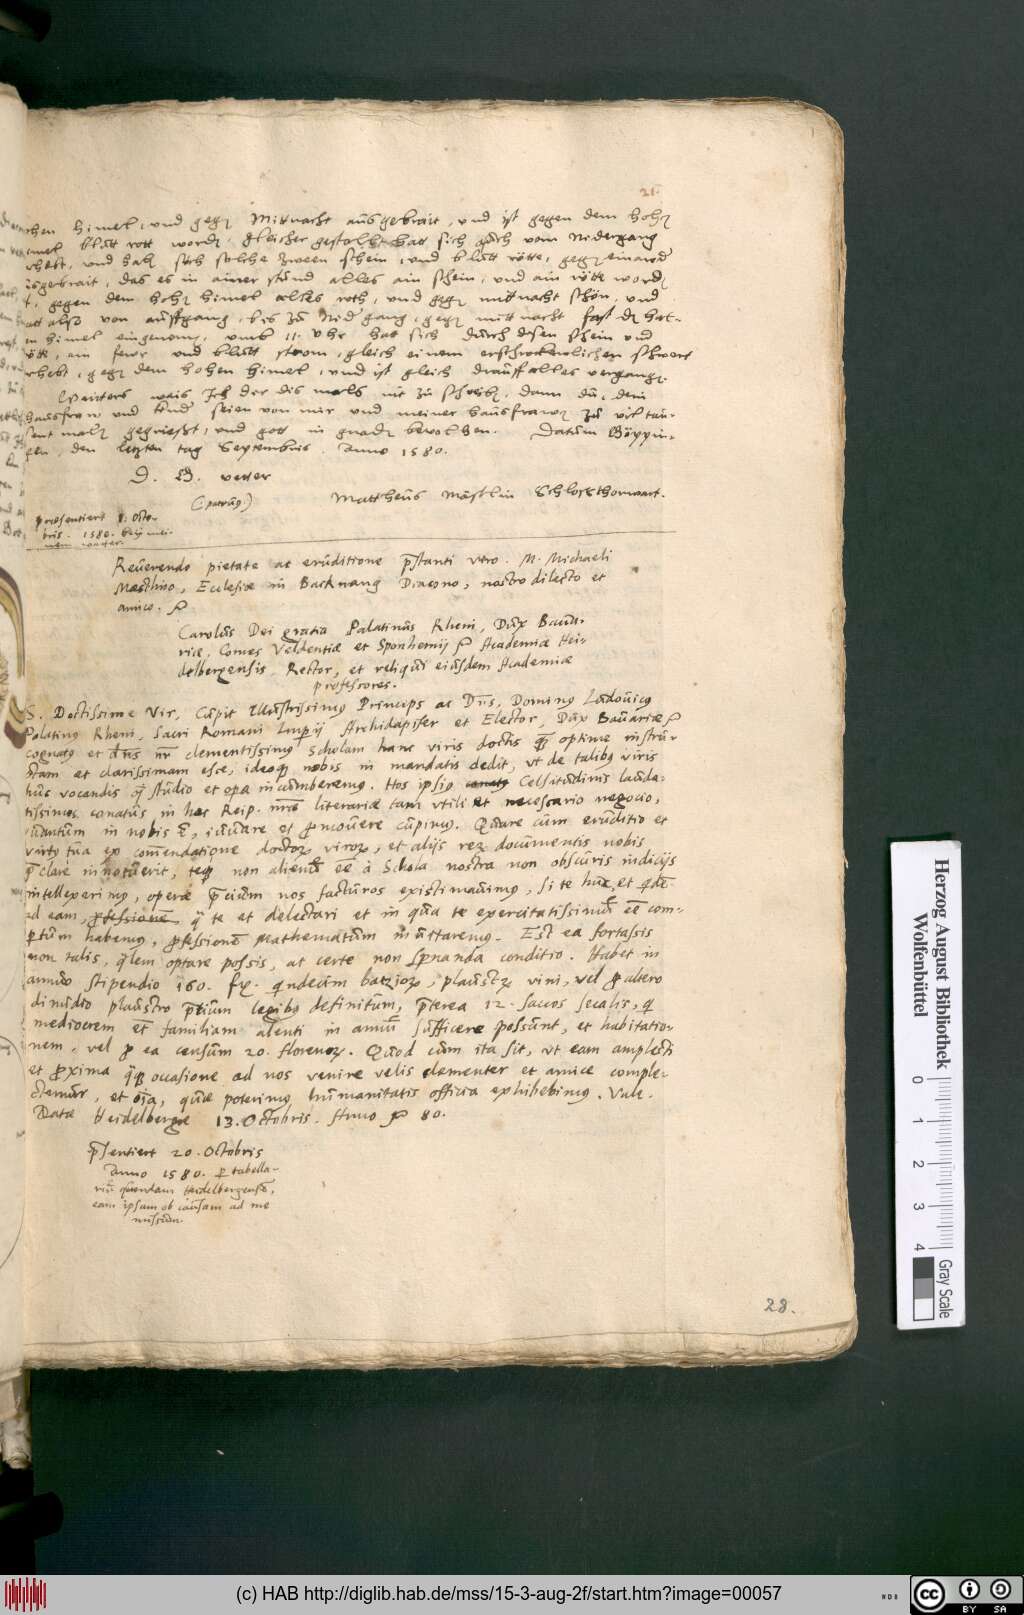 21.
himel, und gegen Mittnacht außgebrait, und ist gegen dem hohen
himel blůtt rott worden. gleicher gestallt hatt sich auch vom Nidergang
erhebt, und sich solche zween schein, und blůtt rötte, gegen einand
außgebrait, das es in ainer stund alles ain schein, und ain rötte worden
gegen dem hohen himel alles roth, und gegen mittnacht schön, und
also von auffgang, bis zů Nidergang, gegen mittnacht fast den hat-
himel eingenomen, umb 11. Uhr hat sich durch disen schein und
rötte, ain fewr und blůtt strom, gleich einem erschrockenlichen schwert
erhebt, gegen dem hohen himel, und ist gleich drauff alles vergangen.
Weitters wais Ich der dis mals nit zů schreiben, dann du, dein
hausfraw und kind seien von mir und meiner hausfrawen zů vil tau-
sent malen gegrießt, und gott in gnaden bevolhen. Datum Göppin-
gen, den letzten tag Septembris. Anno 1580.
D. W. vetter
(patruus)
Mattheus Mästlin Schlossthorwart.
præsentiert 8. Octo-
bris. 1580. bey mei-
nem
Reverendo pietate ac eruditione pstanti viro. M. Michaeli
Mæstlino, Ecclesiæ in Backnang Diacono, nostro dilecto et
amico.
Carolus Dei gratia Palatinus Rheni, Dux Bava-
riæ, Comes Veldentiæ et Sponhemij Academiæ Hei-
delbergensis Rector, et reliqui eiusdem Academiæ
professores.
S. Doctissime Vir, Cupit Illustrissimus Princeps ac Dns, Dominus Ludovicus
Palatinus Rheni, Sacri Romani Imperij Archidapifer et Elector, Dux Bavariæ
cognatus et dns nr clementissimus Scholam hanc viris doctis quam optime instru-
ctam et clarissimam esse, ideoque nobis in mandatis dedit, ut de talibus viris
huc vocandis omni studio et opera incumberemus. Hos ipsius Celsitudinis lauda-
tissimos conatus in hac Reip. literariæ tam utili et necessario negocio,
quantum in nobis est, iuvare et promovere cupimus. Quare cum eruditio et
virtus tua ex commendatione doctorum virorum, et alijs rerum documentis nobis
præclare innotuerit, teque non alienum esse à Schola nostra non obscuris indicijs
intellexerimus, operæ precium nos facturos existimavimus, si te huc, et quidem
ad eam, professionem qua te et delectari et in qua te exercitatissimum esse com-
pertum habemus, professionem Mathematum invitaremus. Est ea fortassis
non talis, qualem optare possis, at certe non spernanda conditio. Habet in
annuo stipendio 160. fl. quindecim batziorum, plaustrum vini, vel pro altero
dimidio plaustro precium legibus definitum, præterea 12. saccos secalis, qui
mediocrem etiam familiam alenti in annum sufficere possunt, et habitatio-
nem, vel pro ea censum 20. florenorum. Quod cum ita sit, ut eam amplecti
et proxima quaque occasione ad nos venire velis clementer et amice comple-
ctemur, et omnia, quæ poterimus humanitatis officia exhibebimus. Vale.
Datæ Heidelbergæ 13. Octobris. Anno 80.
psentiert 20. Octobris
Anno 1580. per tabella-
rium quendam Heidelbergensem,
eam ipsam ob causam ad me
missum.
28.
Herzog August Bibliothek
Wolfenbüttel
0 1 2 3 4
Gray Scale
(c) HAB http://diglib.hab.de/mss/15-3-aug-2f/start.htm?image=00057
cc BY SA